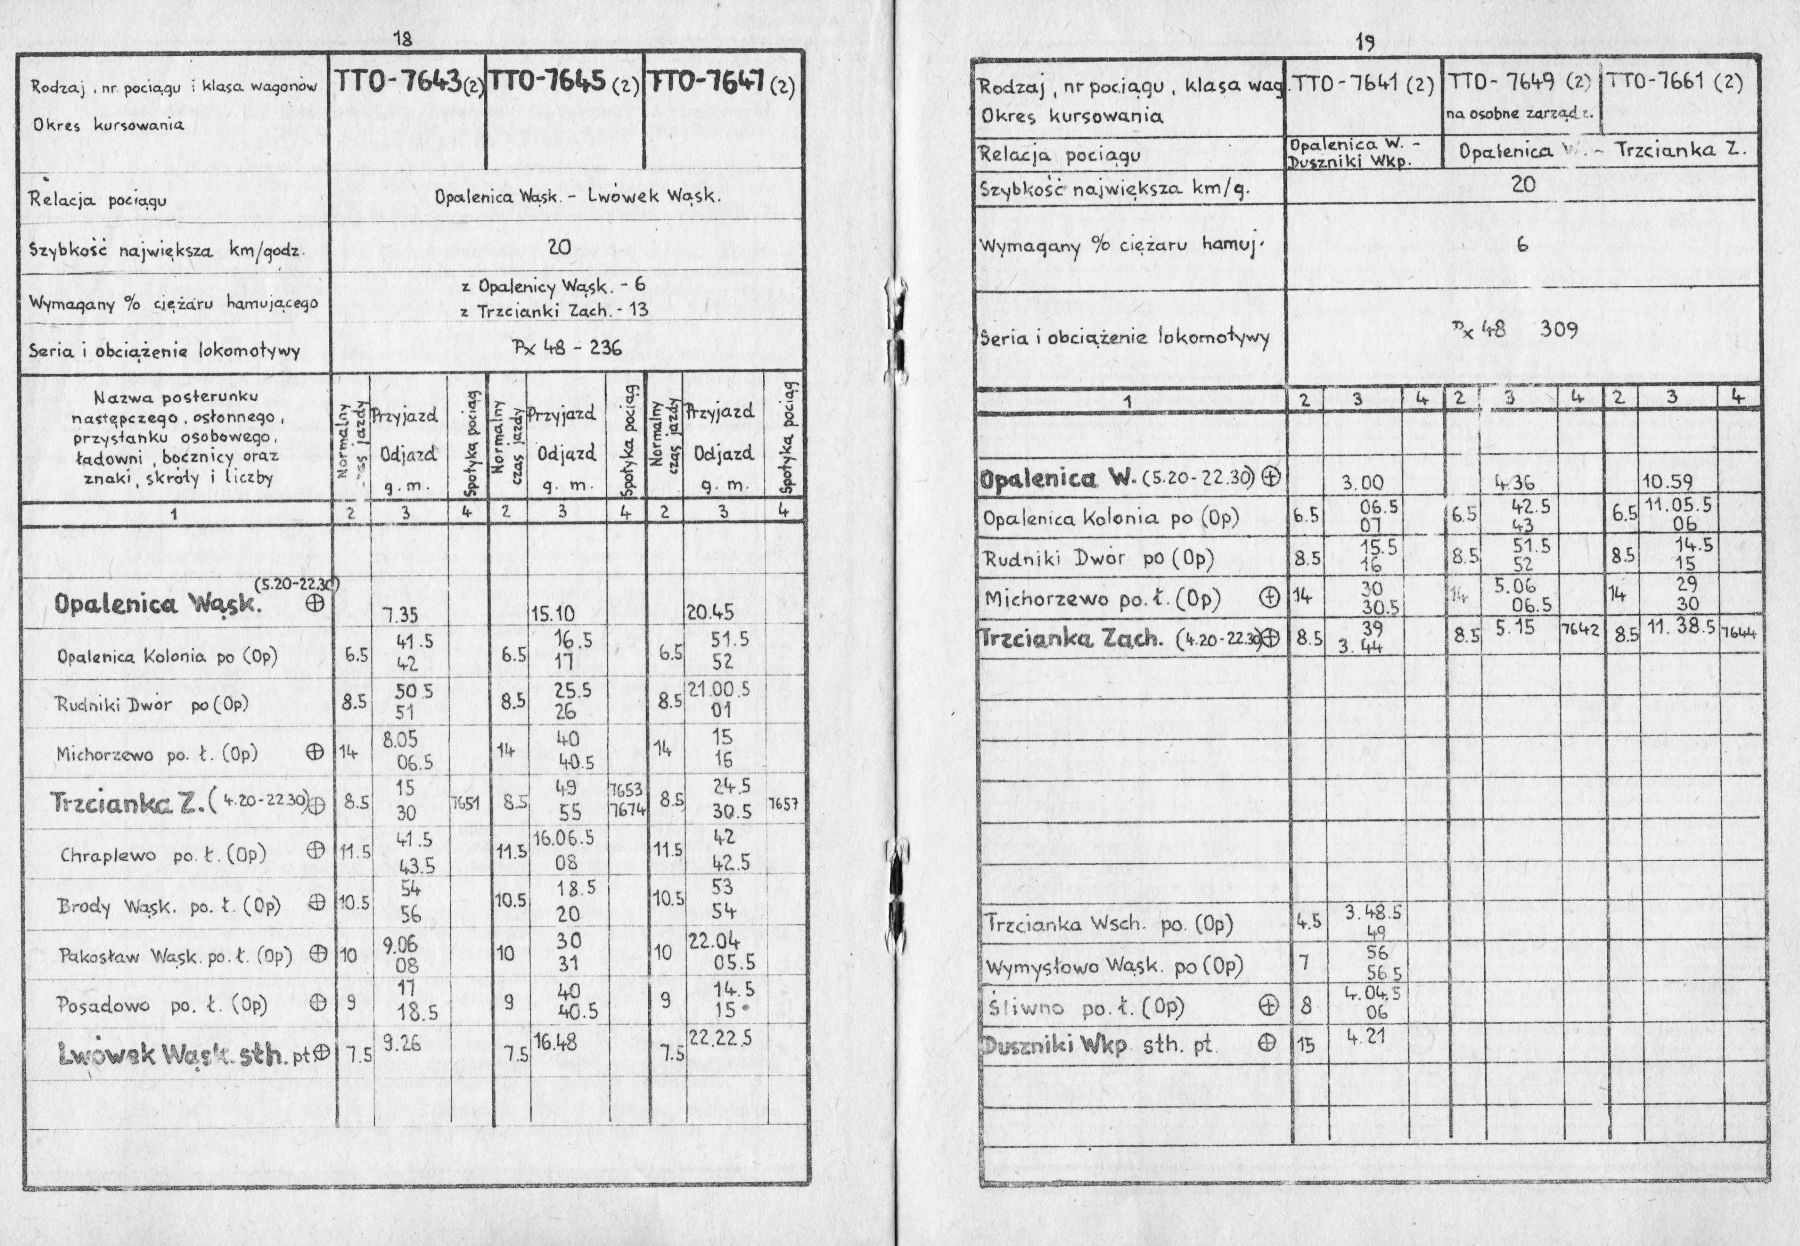 18
Rodzaj, nr. pociągu i klasa wagonów TTO-7643(2) TTO-7645 (2) TTO-7647 (2)
Okres kursowania
Relacja pociągu Opalenica Wąsk. - Lwówek Wąsk.
Szybkość największa km/godz. 20
Wymagany % ciężaru hamującego z Opalenicy Wąsk. - 6
z Trzcianki Zach. - 13
Seria i obciążenie lokomotywy Px 48 - 236
Nazwa posterunku
następczego, osłonnego,
przystanku osobowego,
ładowni, bocznicy oraz
znaki, skróty i liczby
Normalny czas jazdy Przyjazd Odjazd g. m. Spotyka pociąg Normalny czas jazdy Przyjazd Odjazd g. m. Spotyka pociąg Normalny czas jazdy Przyjazd Odjazd g. m. Spotyka pociąg
1 2 3 4 2 3 4 2 3 4
(5.20-22.30)
Opalenica Wąsk. ⊕ 7.35 15.10 20.45
41.5 16.5 51.5
Opalenica Kolonia po (Op) 6.5 6.5 6.5
42 17 52
50.5 25.5 21.00.5
Rudniki Dwór po (Op) 8.5 8.5 8.5
51 26 01
8.05 40 15
Michorzewo po. ł. (Op) ⊕ 14 14 14
06.5 40.5 16
15 49 7653 24.5
Trzcianka Z. (4.20-22.30) ⊕ 8.5 7651 8.5 8.5 7657
30 55 7674 30.5
41.5 16.06.5 42
Chraplewo po. ł. (Op) ⊕ 11.5 11.5 11.5
43.5 08 42.5
54 18.5 53
Brody Wąsk. po. ł. (Op) ⊕ 10.5 10.5 10.5
56 20 54
9.06 30 22.04
Pakosław Wąsk. po. ł. (Op) ⊕ 10 10 10
08 31 05.5
17 40 14.5
Posadowo po. ł. (Op) ⊕ 9 9 9
18.5 40.5 15
9.26 16.48 22.22.5
Lwówek Wąsk. sth. pt ⊕ 7.5 7.5 7.5
19
Rodzaj, nr pociągu, klasa wag. TTO-7641 (2) TTO-7649 (2) TTO-7661 (2)
Okres kursowania na osobne zarządz.
Relacja pociągu Opalenica W. - Duszniki Wkp. Opalenica W. - Trzcianka Z.
Szybkość największa km/g. 20
Wymagany % ciężaru hamuj. 6
Seria i obciążenie lokomotywy Px 48 309
1 2 3 4 2 3 4 2 3 4
Opalenica W. (5.20-22.30) ⊕ 3.00 4.36 10.59
06.5 42.5 11.05.5
Opalenica Kolonia po (Op) 6.5 6.5 6.5
07 43 06
15.5 51.5 14.5
Rudniki Dwór po (Op) 8.5 8.5 8.5
16 52 15
30 5.06 29
Michorzewo po. ł. (Op) ⊕ 14 14 14
30.5 06.5 30
39 5.15 7642 11.38.5 7644
Trzcianka Zach. (4.20-22.30) ⊕ 8.5 8.5 8.5
3.44
3.48.5
Trzcianka Wsch. po. (Op) 4.5
49
56
Wymysłowo Wąsk. po (Op) 7
56.5
4.04.5
Śliwno po. ł. (Op) ⊕ 8
06
Duszniki Wkp sth. pt. ⊕ 15 4.21